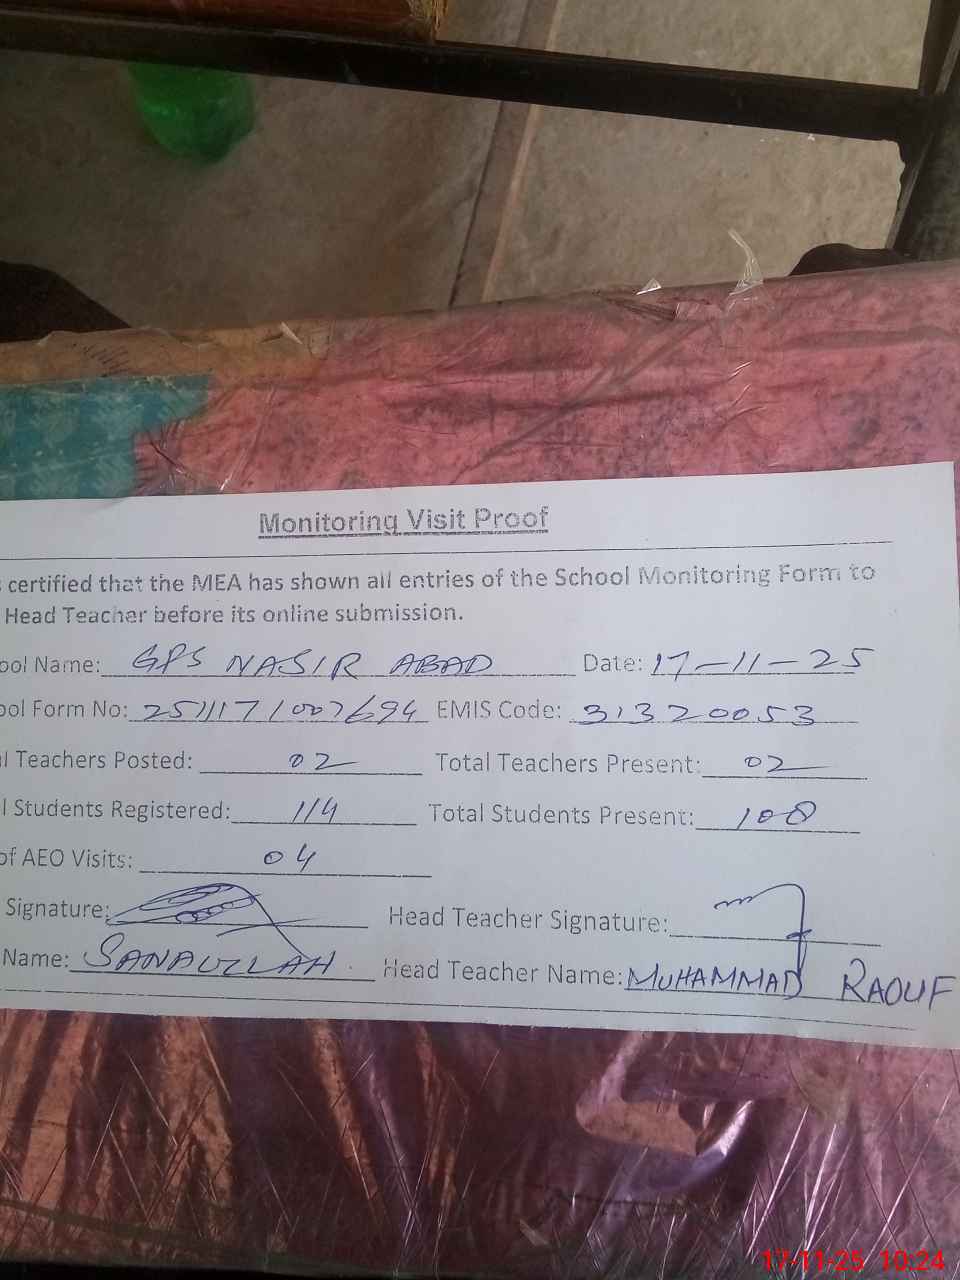 Monitoring Visit Proof
s certified that the MEA has shown all entries of the School Monitoring Form to
Head Teacher before its online submission.
ool Name: GPS NASIR ABAD Date: 17-11-25
ool Form No: 2511171007694 EMIS Code: 31320053
l Teachers Posted: 02 Total Teachers Present: 02
l Students Registered: 114 Total Students Present: 108
of AEO Visits: 04
Signature: Head Teacher Signature:
Name: SANAULLAH. Head Teacher Name: MUHAMMAD RAOUF
17-11-25 10:24